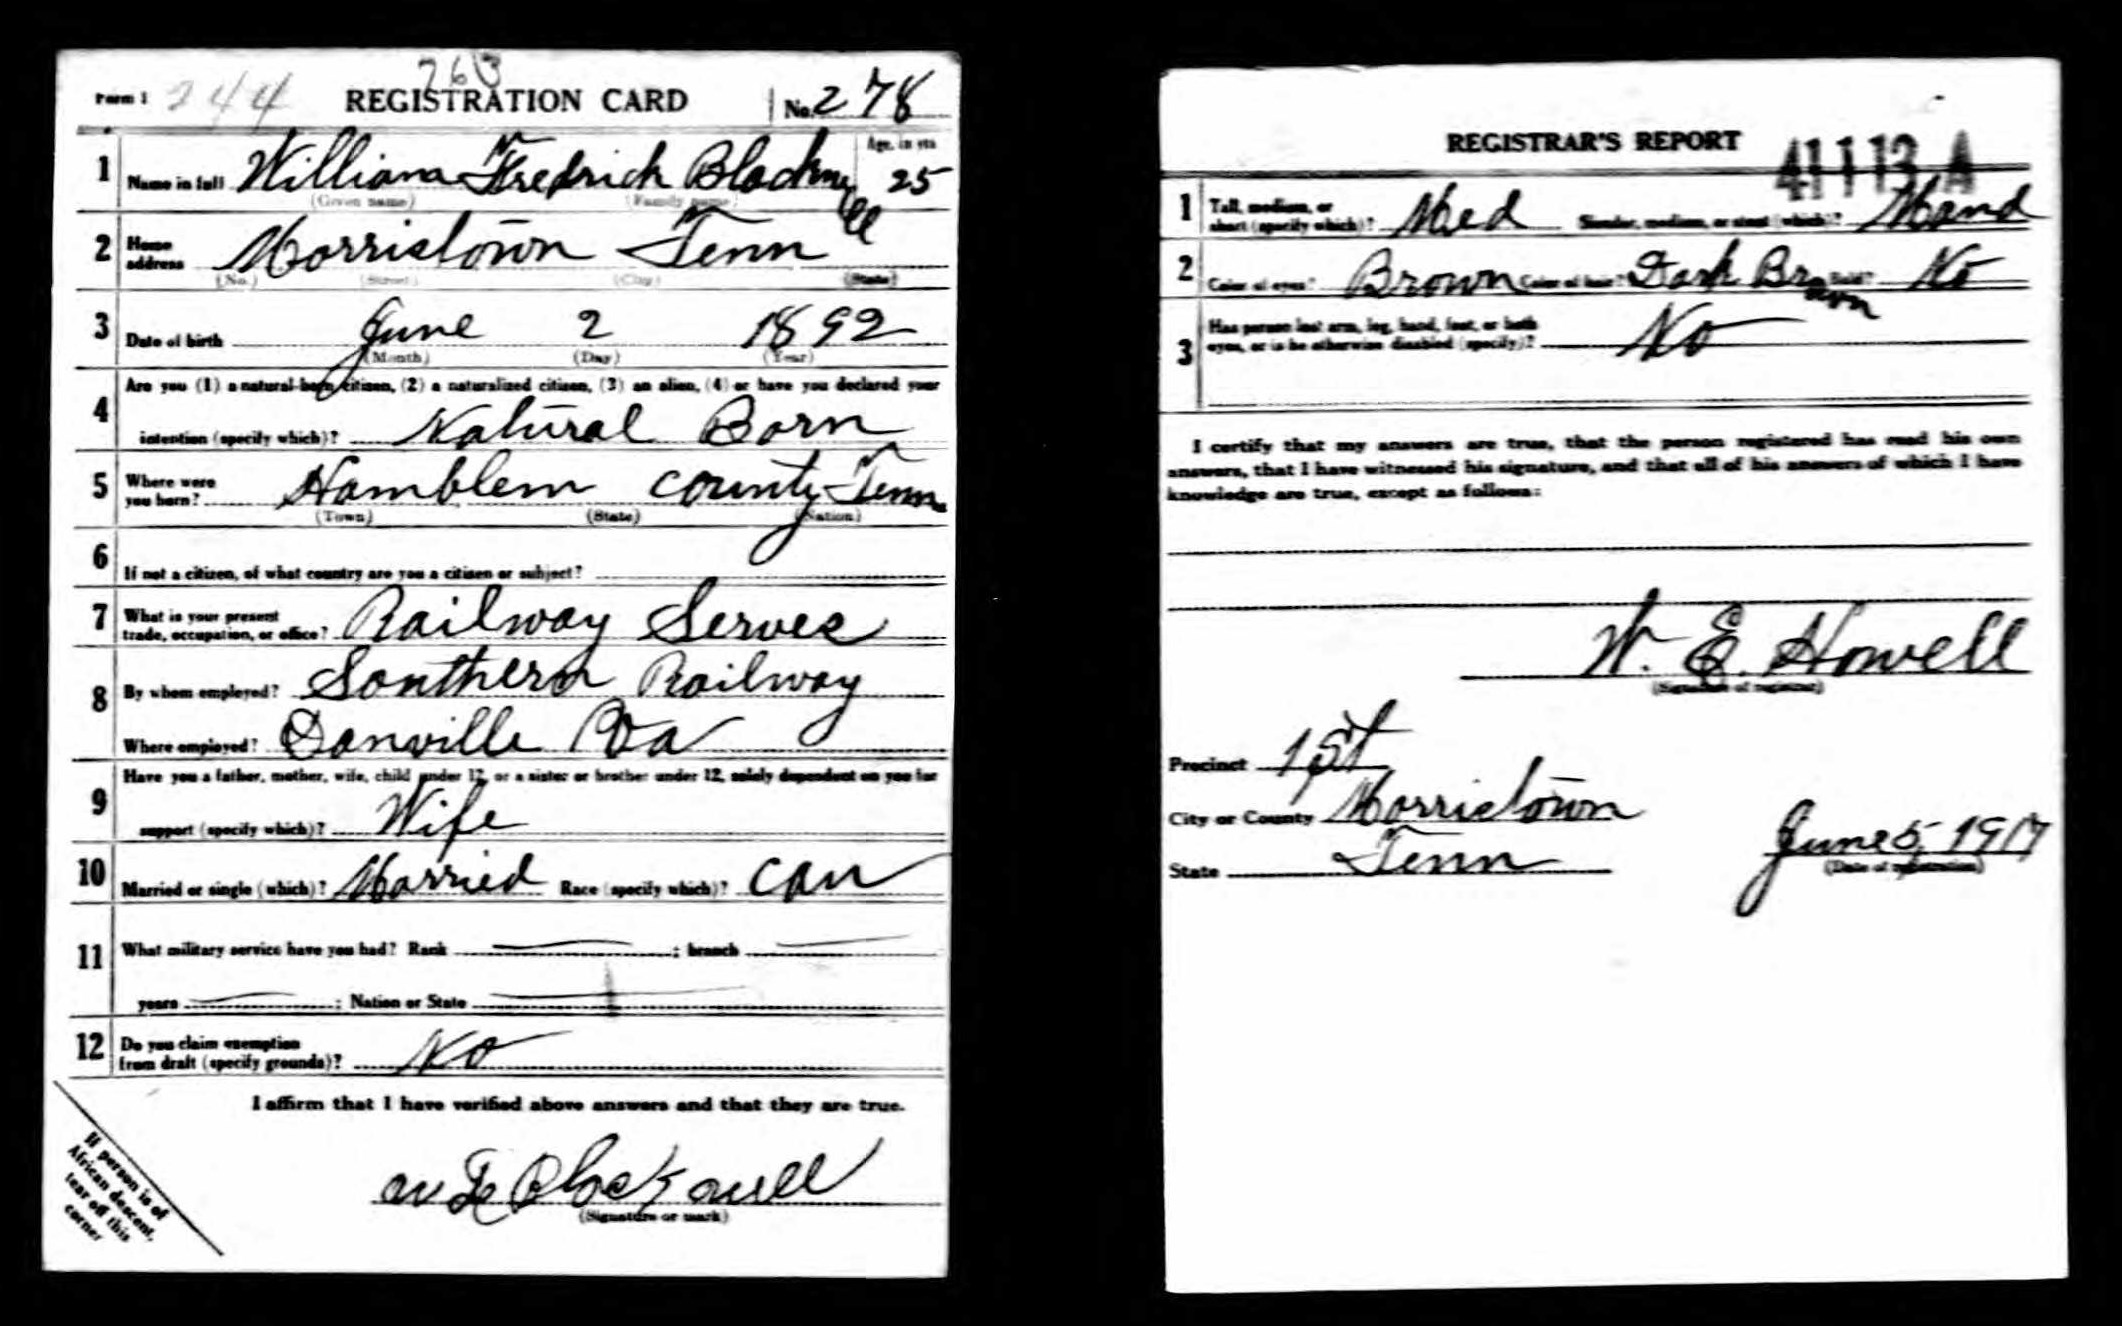 763
Form 1 244 REGISTRATION CARD No. 278
1 Name in full William Fredrick Blackwell Age, in yrs 25
(Given name) (Family name)
2 Home address Morristown Tenn
(No.) (Street) (City) (State)
3 Date of birth June 2 1892
(Month) (Day) (Year)
4 Are you (1) a natural-born citizen, (2) a naturalized citizen, (3) an alien, (4) or have you declared your
intention (specify which)? Natural Born
5 Where were you born? Hamblem county Tenn
(Town) (State) (Nation)
6 If not a citizen, of what country are you a citizen or subject?
7 What is your present trade, occupation, or office? Railway Serves
8 By whom employed? Southern Railway
Where employed? Danville Va
9 Have you a father, mother, wife, child under 12, or a sister or brother under 12, solely dependent on you for
support (specify which)? Wife
10 Married or single (which)? Married Race (specify which)? Cau
11 What military service have you had? Rank ; branch
years ; Nation or State
12 Do you claim exemption from draft (specify grounds)? No
I affirm that I have verified above answers and that they are true.
W F Blackwell
(Signature or mark)
If person is of
African descent,
tear off this
corner
REGISTRAR'S REPORT 41113 A
1 Tall, medium, or short (specify which)? Med Slender, medium, or stout (which)?
2 Color of eyes? Brown Color of hair? Dark Brown Bald? No
3 Has person lost arm, leg, hand, foot, or both
eyes, or is he otherwise disabled (specify)? No
I certify that my answers are true, that the person registered has read his own
answers, that I have witnessed his signature, and that all of his answers of which I have
knowledge are true, except as follows:
W. E. Howell
(Signature of registrar)
Precinct 1st
City or County Morristown
State Tenn June 5, 1917
(Date of registration)